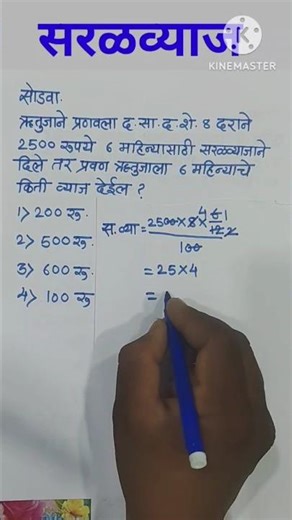 सरळव्याज
KINEMASTER
सोडवा.
ऋतुजाने प्रणवला द.सा.द.शे. 8 दराने
2500 रुपये 6 महिन्यासाठी सरळव्याजाने
दिले तर प्रणव ऋतुजाला 6 महिन्याचे
किती व्याज देईल ?
1) 200 रु.
2) 500 रु.
3) 600 रु.
4) 100 रु
स. व्या = 2500 × 8 × 6 / 12 4 1 2
100
= 25 × 4
=